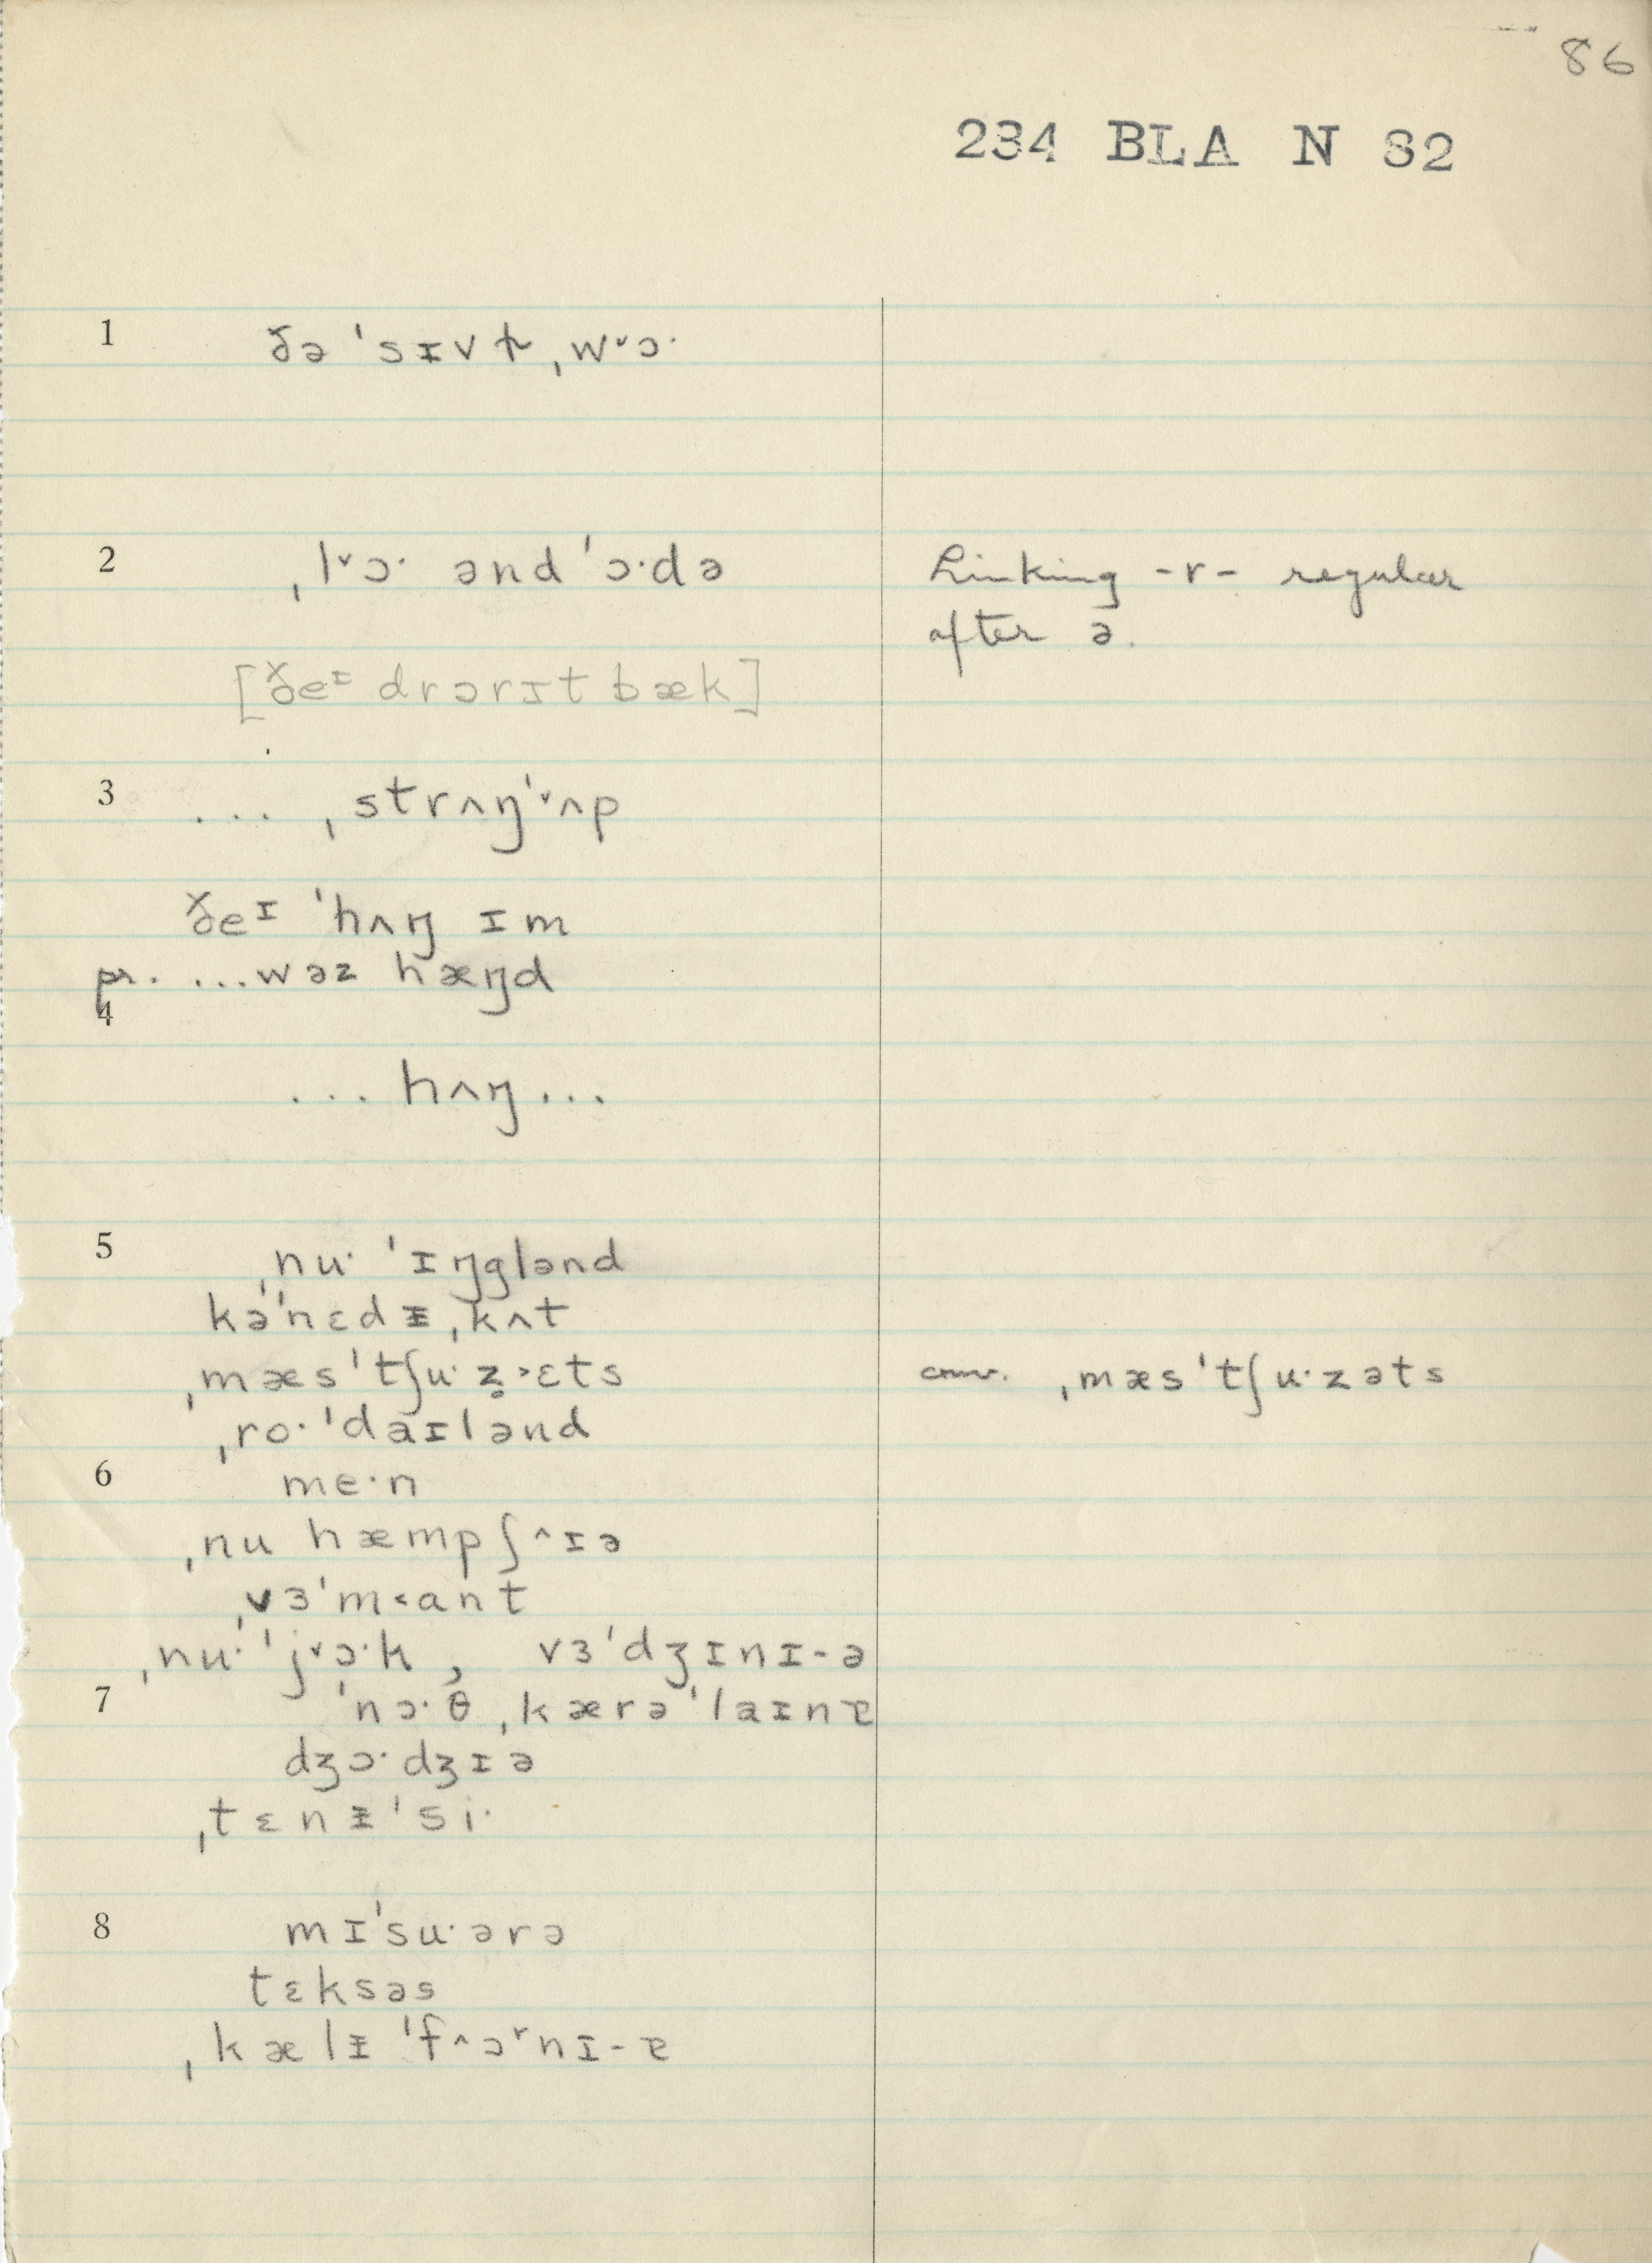 86
234 BLA N 82
1 ðə ˈsɪvɫ̩ ˌwˇɔ·
2 ˌlˇɔ· ənd ˈɔ·də
Linking -r- regular
after ə.
[ðeᶦ drɔrɪt bæk]
3 ... ˌstrʌŋˈˇʌp
ðeᶦ ˈhʌŋ ɪm
pr. ...wəz hæŋd
4
... hʌŋ ...
5 ˌnu· ˈɪŋglənd
kəˈnɛdᵻˌkʌt
ˌmæsˈtʃu·z̥˃ɛts
cnv. ˌmæsˈtʃu·zəts
ˌro·ˈdaɪlənd
6 me·n
ˌnu hæmpʃ^ɪə
ˌvɜˈm˂ant
ˌnu·ˈjˇɔ·k , vɜˈdʒɪnɪ-ə
7 ˈnɔ·θ ˌkærəˈlaɪnɐ
dʒɔ·dʒɪə
ˌtɛnᵻˈsi·
8 mɪˈsu·ərə
tɛksəs
ˌkælᵻˈf^ɔʳnɪ-ɐ